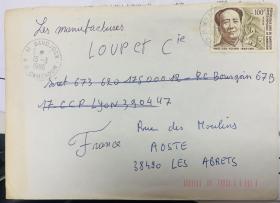 Les manufactures
LOUP et Cie
Siret 673 620 175 00012 - RC Bourgoin 67B
17 CCP Lyon 3904 47
France
Rue des Moulins
AOSTE
38490 LES ABRETS
100F
CAMEROUN